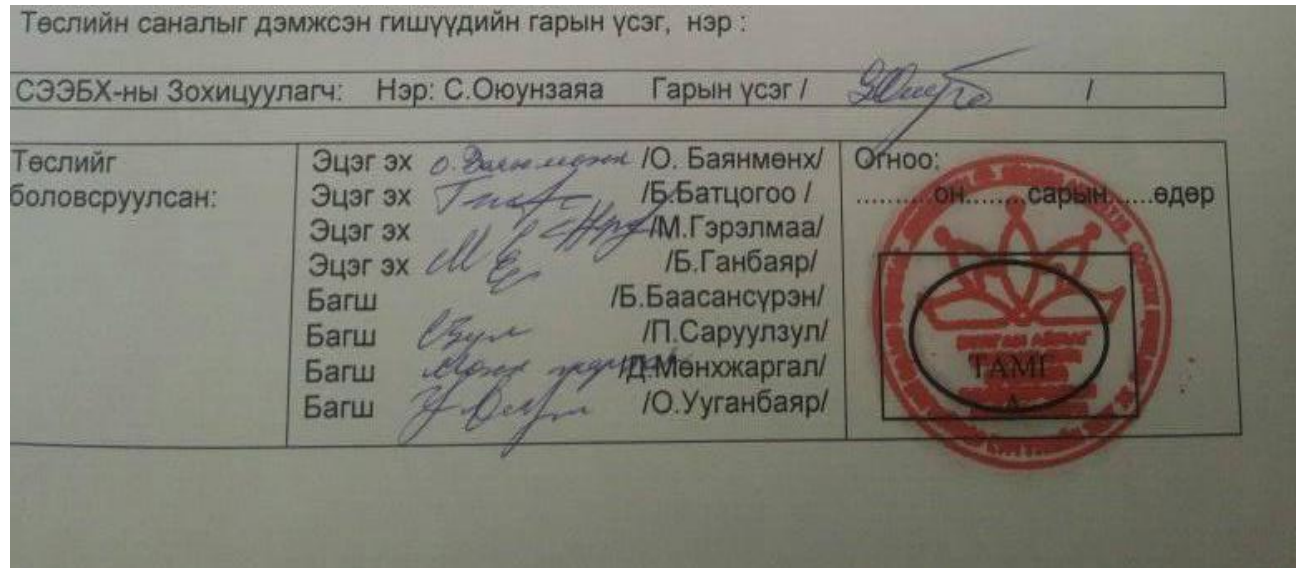 Төслийн саналыг дэмжсэн гишүүдийн гарын үсэг, нэр :
СЭЭБХ-ны Зохицуулагч: Нэр: С.Оюунзаяа Гарын үсэг / /
Төслийг
боловсруулсан:
Эцэг эх о. Баянмөнх /О. Баянмөнх/
Эцэг эх /Б.Батцогоо /
Эцэг эх /М.Гэрэлмаа/
Эцэг эх /Б.Ганбаяр/
Багш /Б.Баасансүрэн/
Багш /П.Саруулзул/
Багш /Д.Мөнхжаргал/
Багш /О.Ууганбаяр/
Огноо:
..........он........сарын......өдөр
ТАМГ
А